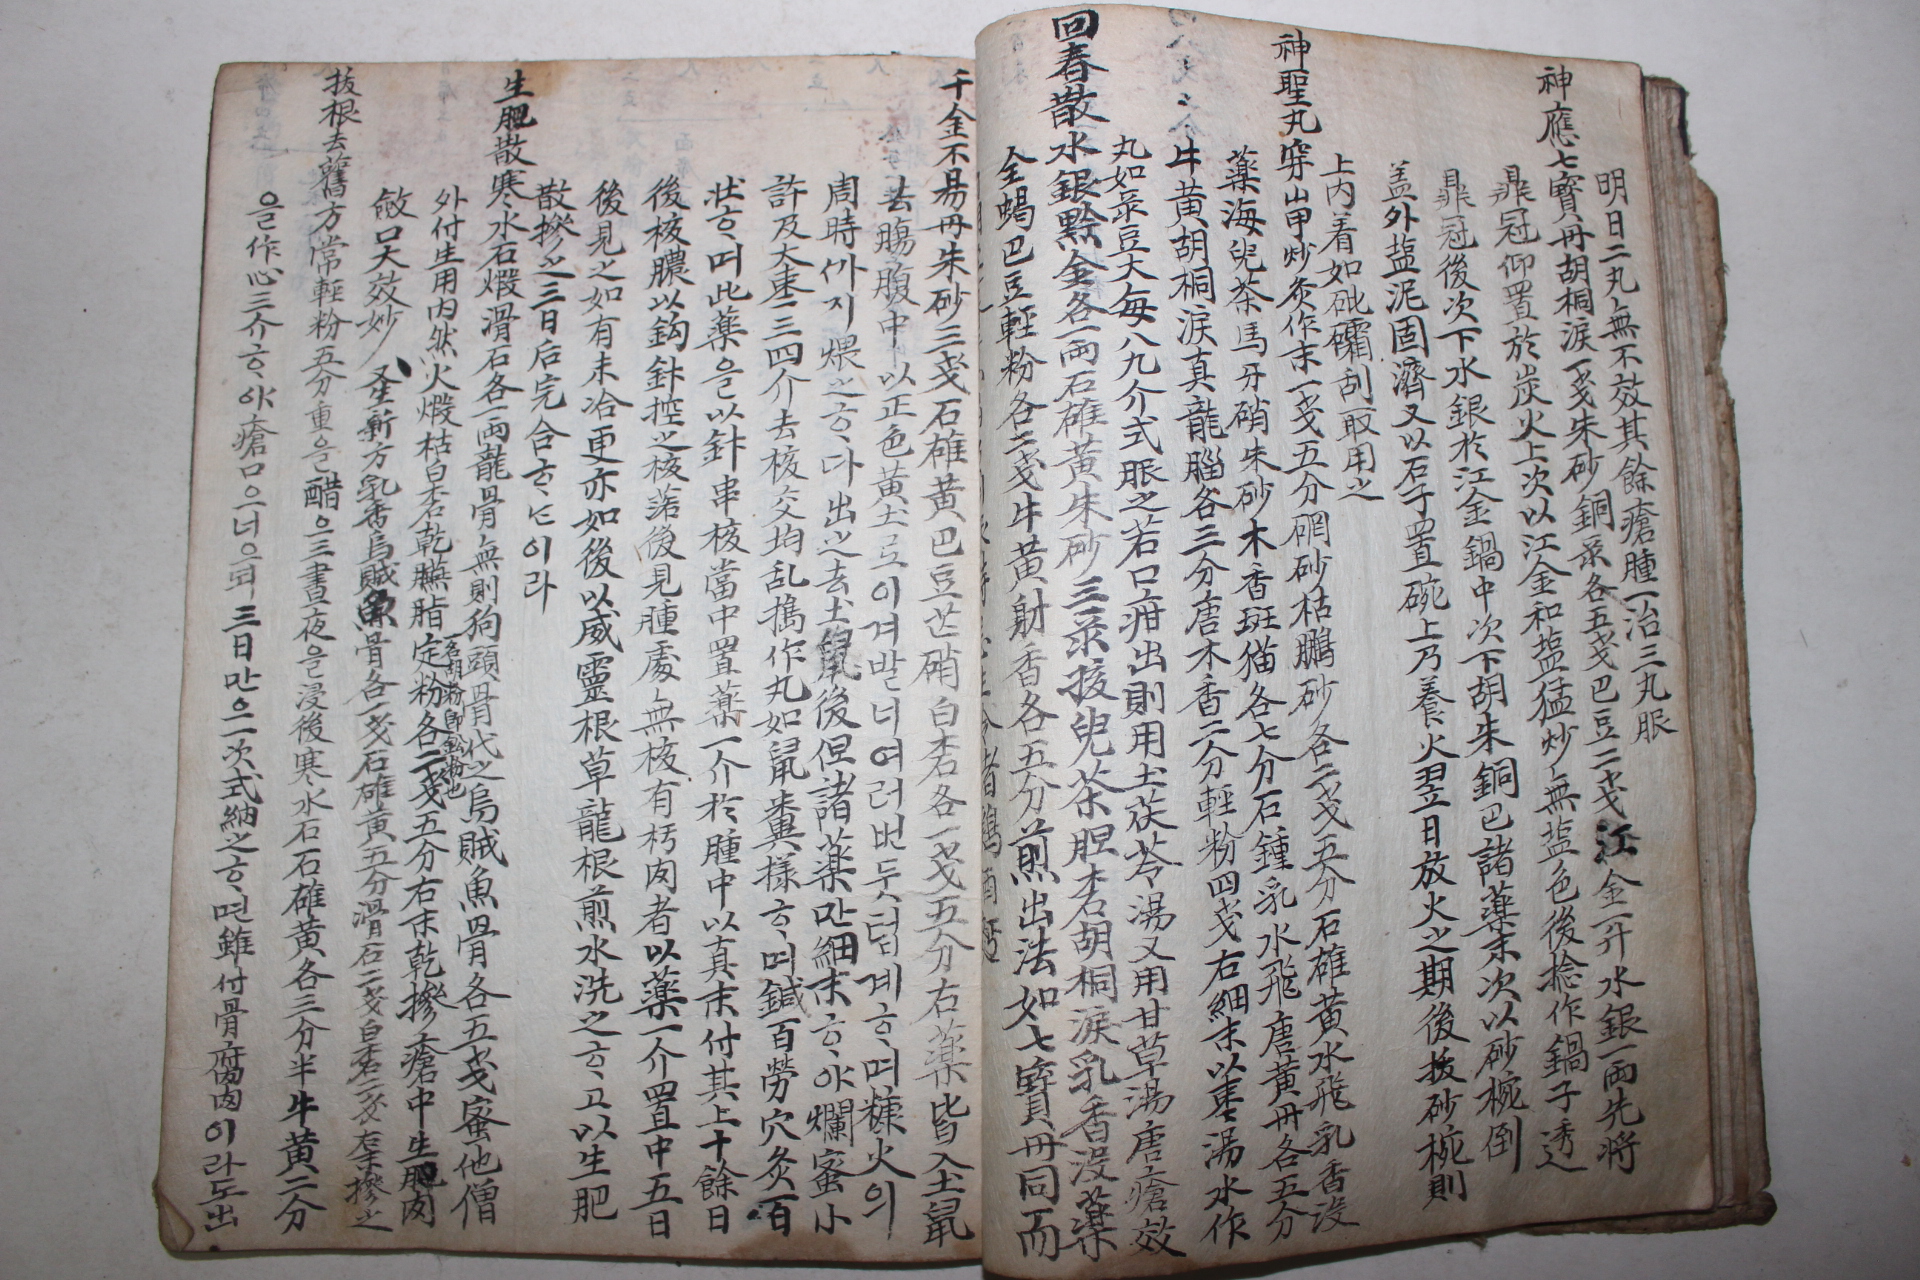 明日二丸無不效其餘瘡腫一治三丸服
神應七寶丹胡桐淚一戔朱砂銅菉各五戔巴豆二戔江金一升水銀一兩先將
鼎冠仰置於炭火上次以江金和塩猛炒無塩色後捻作鍋子透
鼎冠後次下水銀於江金鍋中次下胡朱銅巴諸藥末次以砂椀倒
盖外塩泥固濟又以石子置碗上乃養火翌日放火之期後拔砂椀則
上内着如砒礵刮取用之
神聖丸穿山甲炒灸作末一戔五分硇砂枯鵬砂各二戔五分石雄黃水飛乳香没
藥海兒茶馬牙硝朱砂木香斑猫各七分石鍾乳水飛唐黃丹各五分
牛黃胡桐淚真龍腦各三分唐木香二分輕粉四戔右細末以棗湯水作
丸如菉豆大每八九介式服之若口疳出則用土茯苓湯又用甘草湯唐瘡效
回春散水銀黔金各一兩石雄黃朱砂三菉孩兒茶胆枯胡桐淚乳香没藥
全蝎巴豆輕粉各二戔牛黃射香各五分煎出法如七寶丹同而
千金不易丹朱砂三戔石雄黃巴豆芒硝白枯各一戔五分右藥皆入土鼠
去膓腹中以正色黃土로이겨발너여러번둣텁게ᄒᆞ며糠火의
周時ᄭᅡ지煨之ᄒᆞ다出之去土鼠後但諸藥만細末ᄒᆞ야爛蜜小
許及大棗三四介去核交均乱搗作丸如鼠糞樣ᄒᆞ며鍼百勞穴灸百
壯ᄒᆞ며此藥을以針串核當中置藥一介於腫中以真末付其上十餘日
後核膿以鈎針控之核落後見腫處無核有朽肉者以藥一介置中五日
後見之如有未冶更亦如後以威靈根草龍根煎水洗之ᄒᆞ고以生肥
散摻之三日后完合ᄒᆞᄂᆞ이라
生肥散寒水石煆滑石各一兩龍骨無則狗頭骨代之烏賊魚骨各五戔蜜他僧
外付生用内然火煆枯白枯乾臙脂定粉各二戔五分右末乾摻瘡中生肥肉
一名胡粉即鉛粉也
斂口天效妙 又生新方乳香烏賊魚骨各一戔石雄黃五分滑石二戔白枯二戔右末摻之
拔根去舊方常輕粉五分重을醋으三晝夜을浸後寒水石石雄黃各三分半牛黃二分
을作心三介ᄒᆞ야瘡口으너으되三日만으一次式納之ᄒᆞ면雖付骨腐肉이라도出